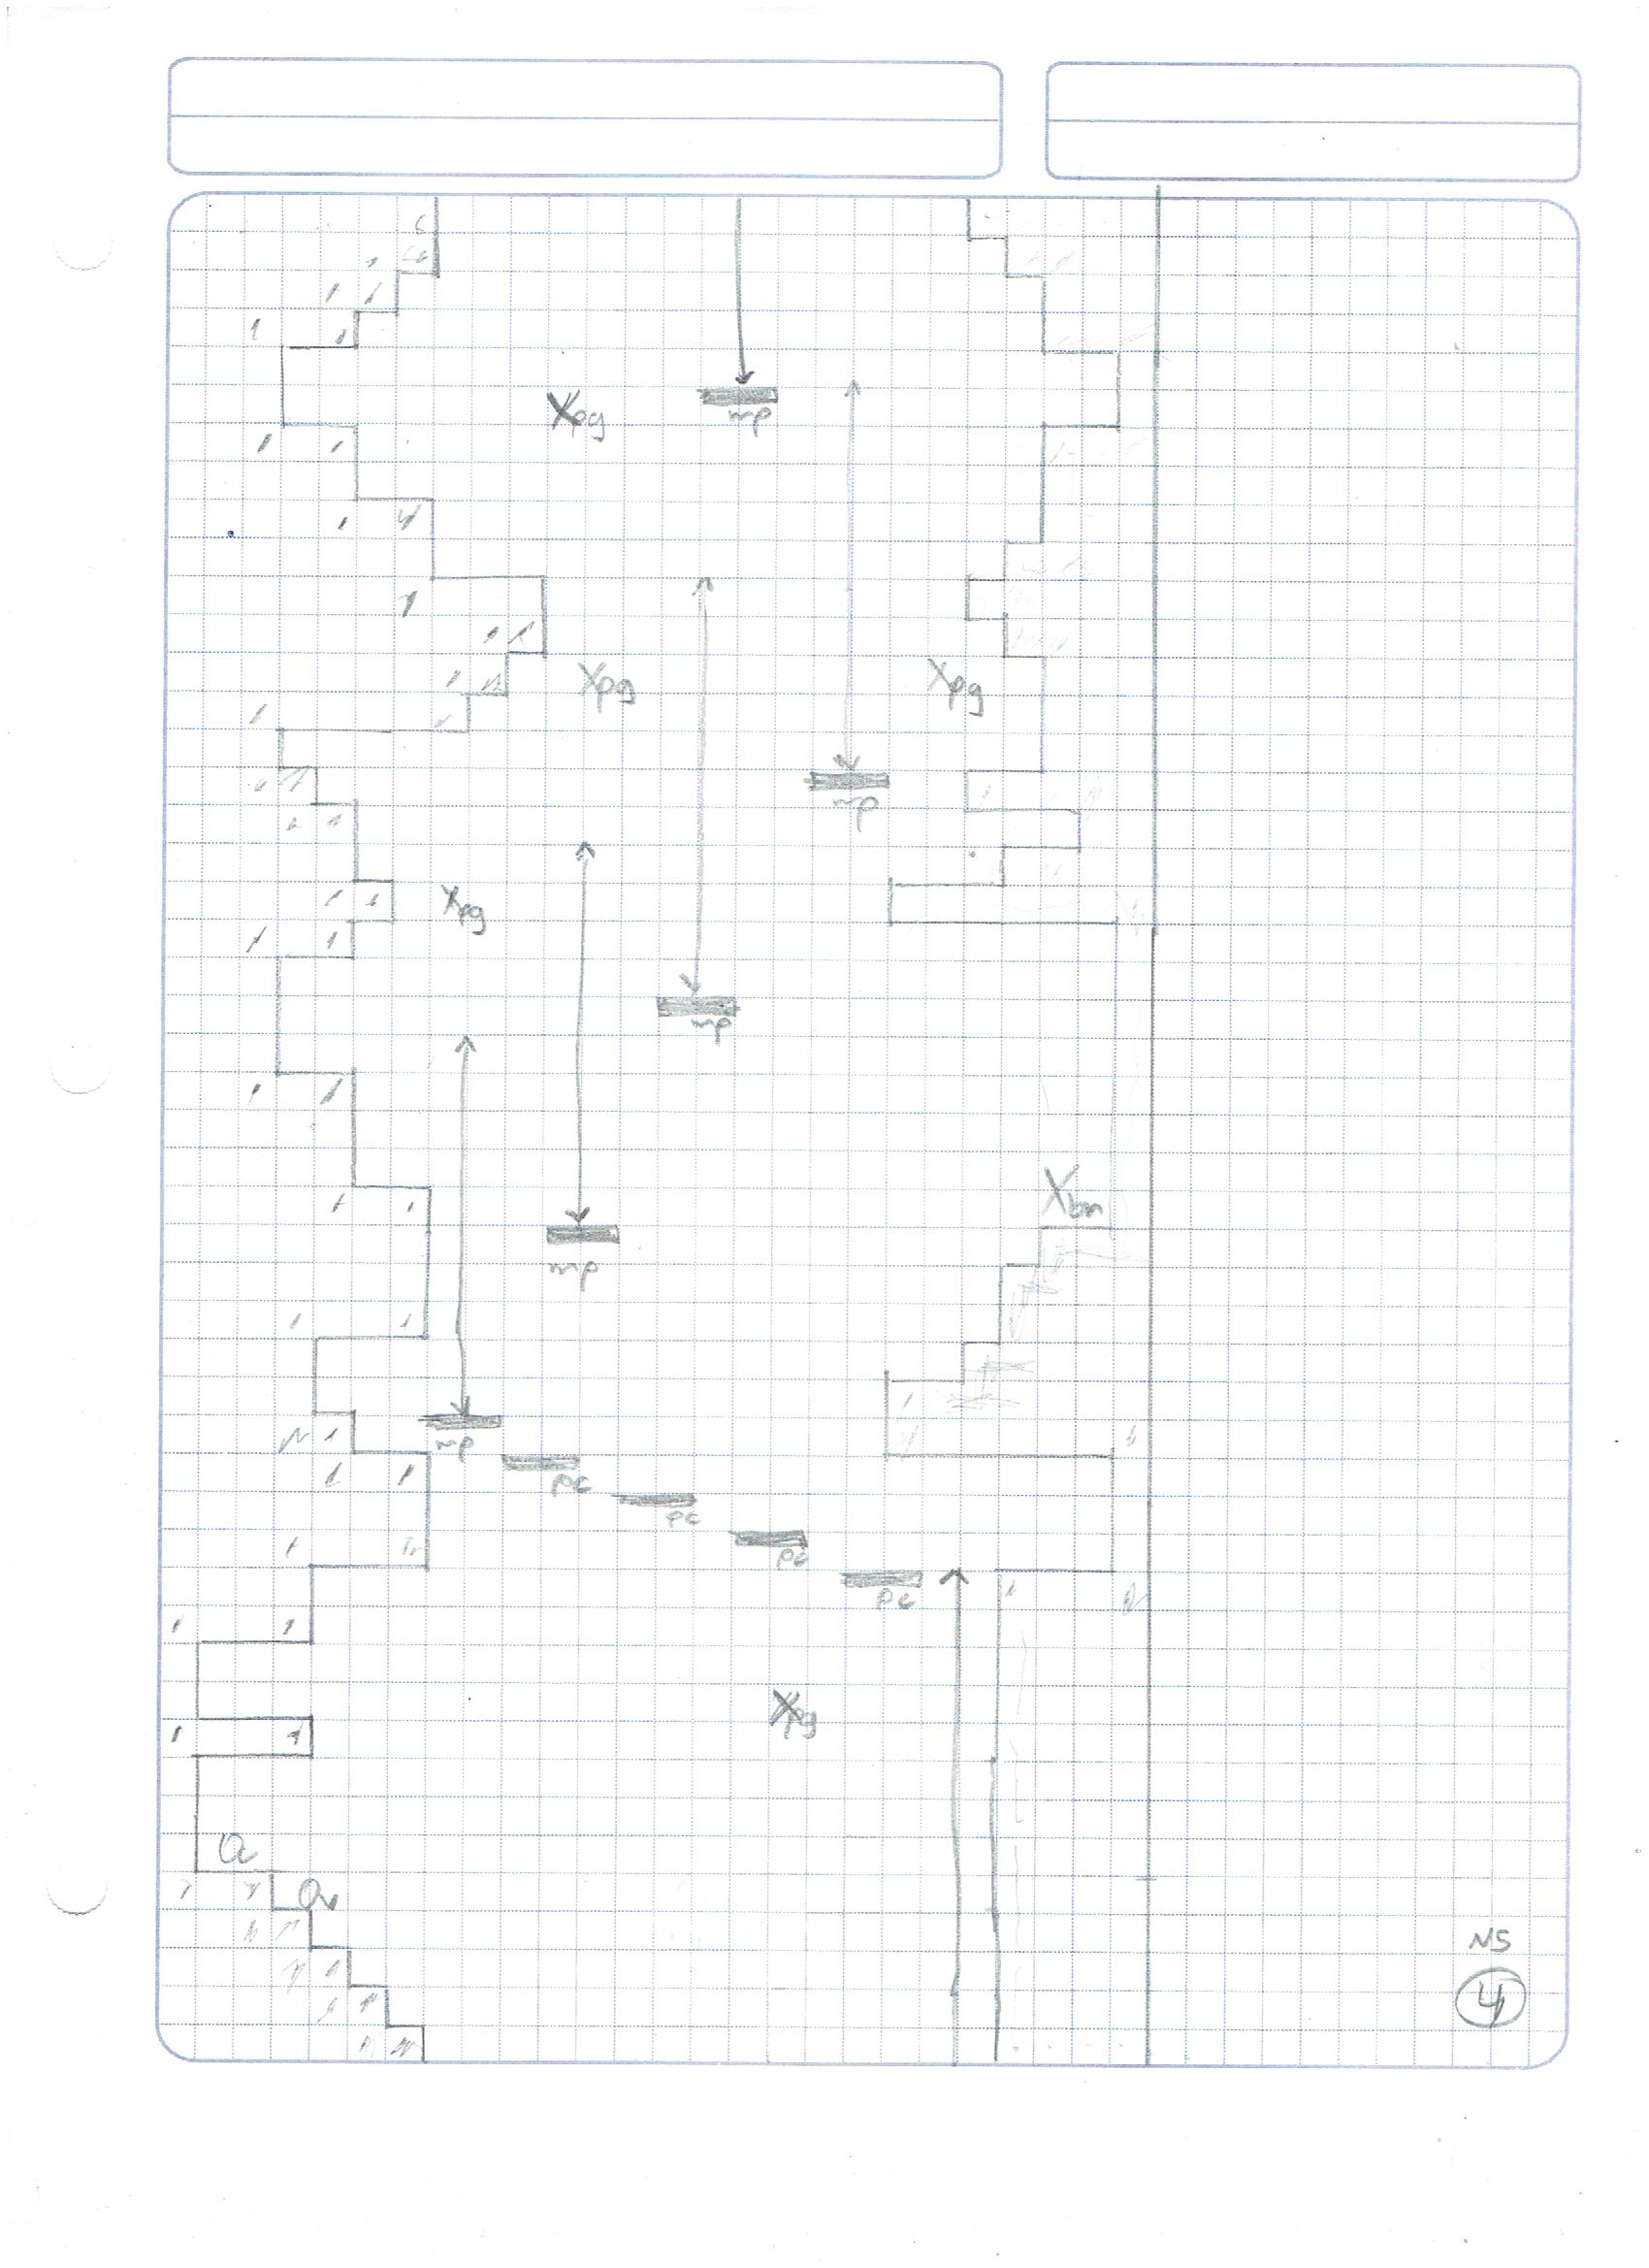 mp
Xpg
Xpg
Xpg
mp
Xpg
mp
Xbn
mp
mp
pc
pc
pc
pc
Xpg
a
NS
4